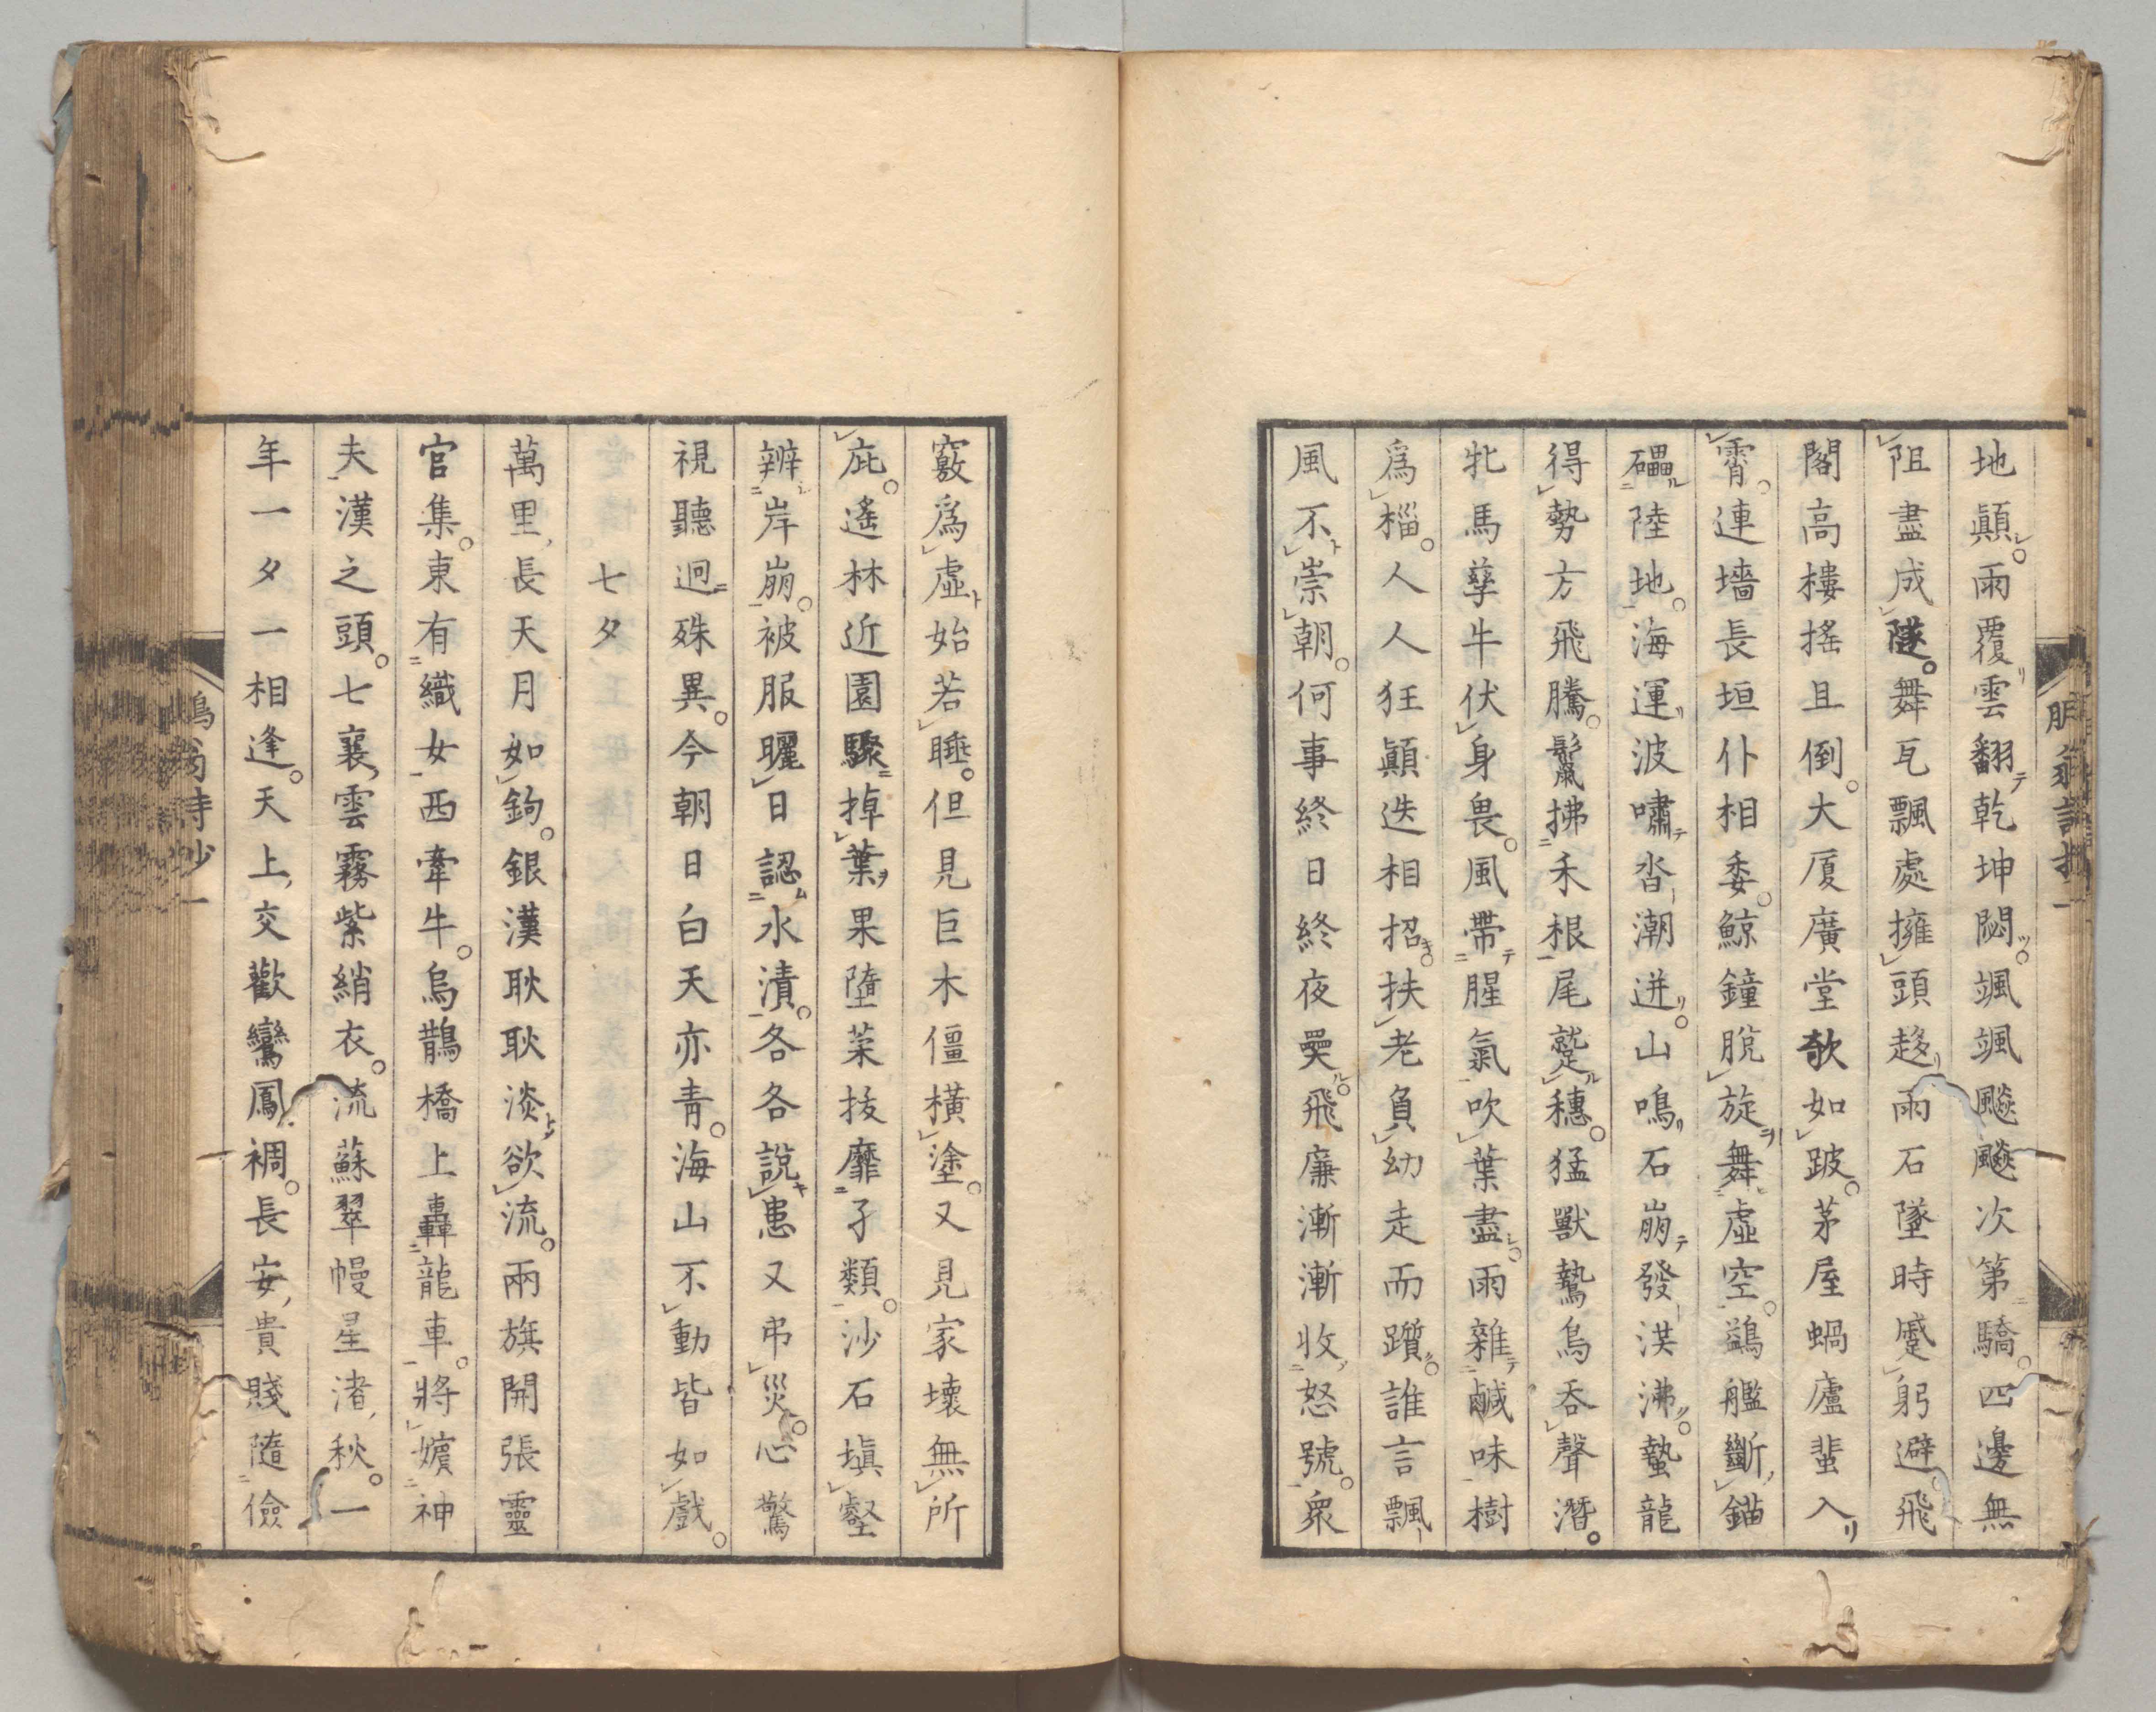 地顚雨覆雲翻乾坤閟颯颯飈飈次第驕四邊無
阻盡成隧舞瓦飄處擁頭趍雨石墜時蹙躬避飛
閣高樓搖且倒大厦廣堂欹如跛茅屋蝸廬蜚入
霄連墻長垣仆相委鯨鐘脫旋舞虛空鷁艦斷錨
礧陸地海運波嘯沓潮迸山鳴石崩發洪沸蟄龍
得勢方飛騰鬣拂禾根尾蹴穗猛獸鷙鳥吞聲潛
牝馬孳牛伏身畏風帶腥氣吹葉盡雨雜鹹味樹
爲椔人人狂顚迭相招扶老負幼走而躓誰言飄
風不崇朝何事終日終夜奰飛廉漸漸收怒號衆
竅爲虛始若睡但見巨木僵橫塗又見家壞無所
庇遙林近園驟掉葉果墮菜拔靡孑類沙石塡壑
辨岸崩被服曬日認水漬各各說患又弔災心驚
視聽迥殊異今朝日白天亦青海山不動皆如戲
七夕
萬里長天月如鉤銀漢耿耿淡欲流兩旗開張靈
官集東有織女西牽牛烏鵲橋上轟龍車將嬪神
夫漢之頭七襄雲霧紫綃衣流蘇翠幔星渚秋一
年一夕一相逢天上交歡鸞鳳裯長安貴賤隨儉